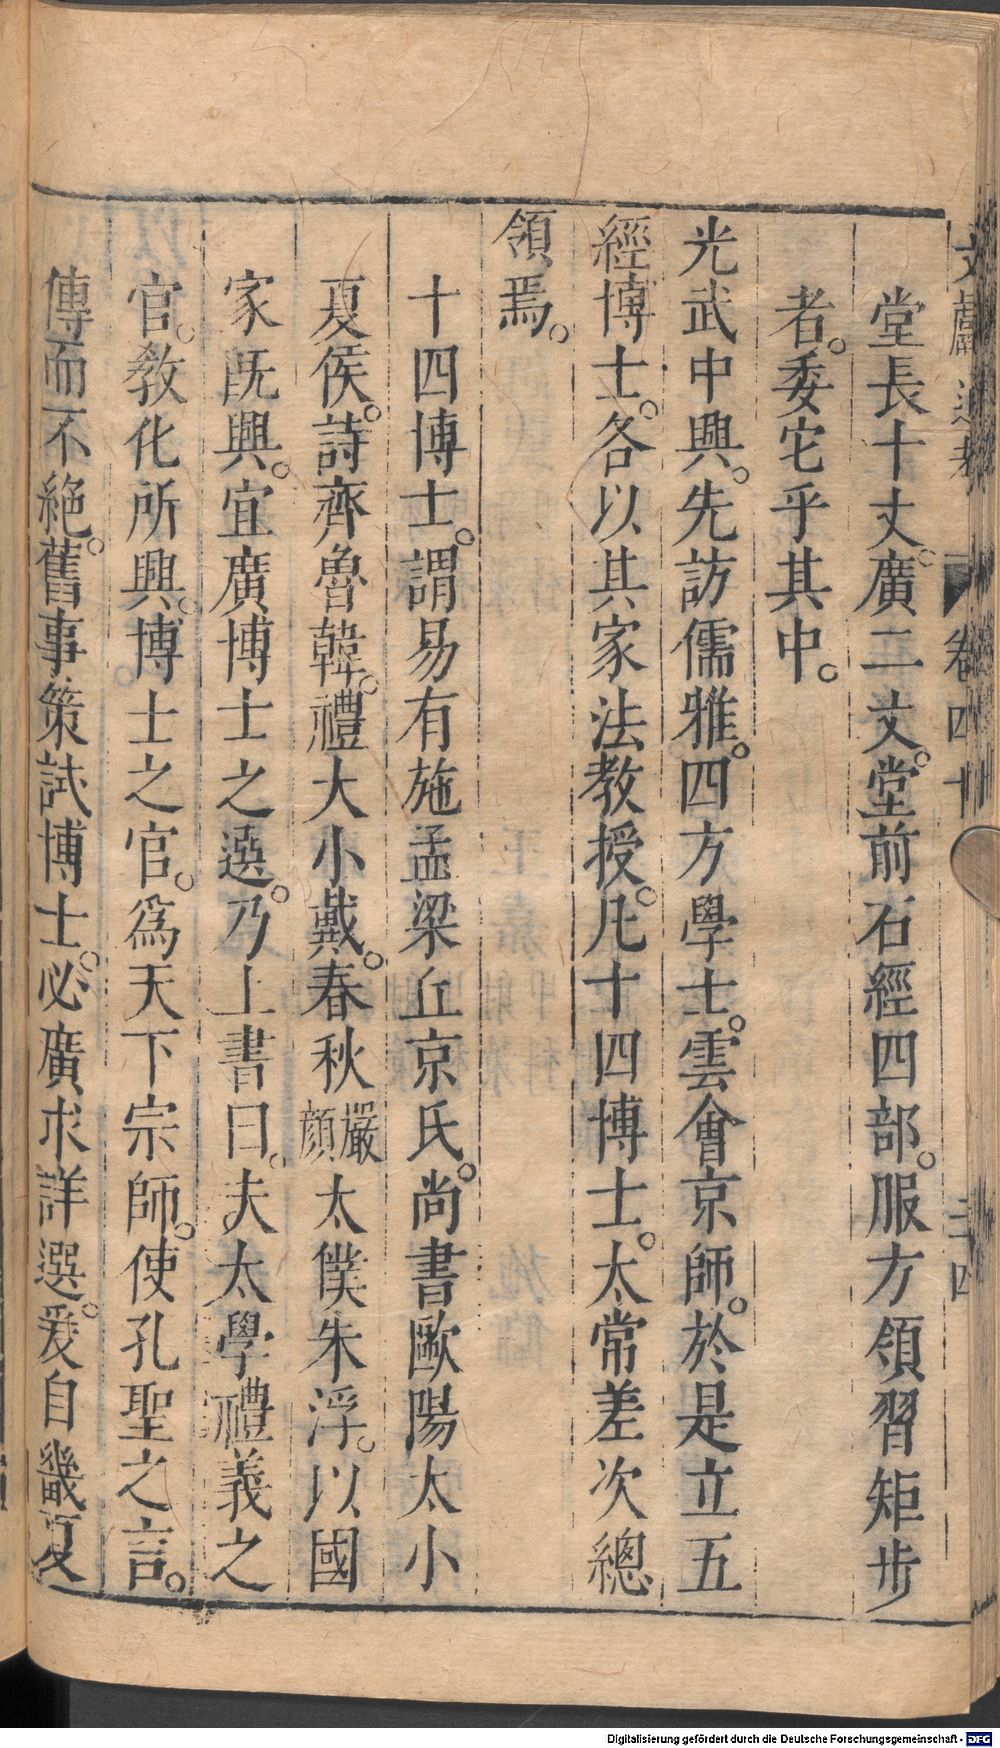 文獻通考 卷四十 三四
堂長十丈。廣二丈。堂前石經四部。服方領習矩步
者。委它乎其中。
光武中興。先訪儒雅。四方學士。雲會京師。於是立五
經博士。各以其家法教授。凡十四博士。太常差次總
領焉。
十四博士。謂易有施孟梁丘京氏。尚書歐陽大小
夏侯。詩齊魯韓。禮大小戴。春秋嚴顏太僕朱浮。以國
家既興。宜廣博士之選。乃上書曰。夫太學禮義之
官。教化所興。博士之官。爲天下宗師。使孔聖之言。
傳而不絕。舊事策試博士。必廣求詳選。爰自畿夏
Digitalisierung gefördert durch die Deutsche Forschungsgemeinschaft - DFG